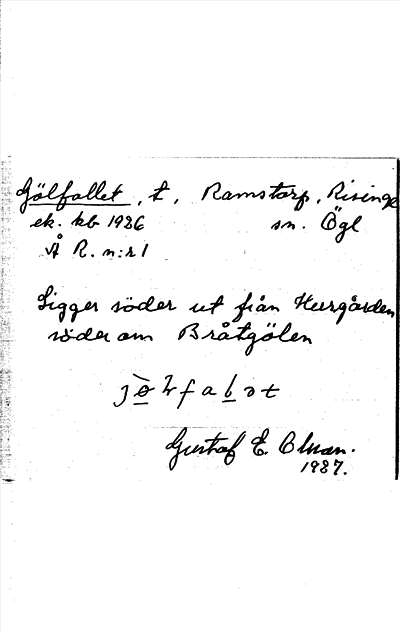 Gölfallet, t, Ramstorp, Risinge
ek. kb 1936 sn. Ögl
Å R. n:r 1
Ligger söder ut från Herrgården
söder om Bråtgölen
Gustaf E. Olsson.
1937.